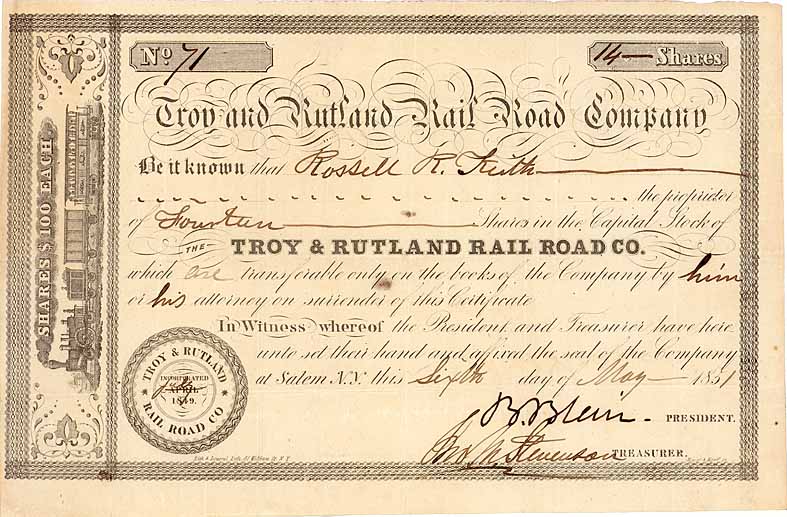 No. 71
14 Shares
Troy and Rutland Rail Road Company
Be it known that Rossell R. Keith
the proprietor
of Fourteen Shares in the Capital Stock of
THE
TROY & RUTLAND RAIL ROAD CO.
which are transferable only on the books of the Company by him
or his attorney on surrender of this Certificate
In Witness whereof the President and Treasurer have here
unto set their hand and affixed the seal of the Company
at Salem N.Y. this Sixth day of May 1851
B. Blair PRESIDENT.
Jno. M. Stevenson TREASURER.
SHARES $100 EACH
TROY & RUTLAND
INCORPORATED
APRIL
1849.
RAIL ROAD CO